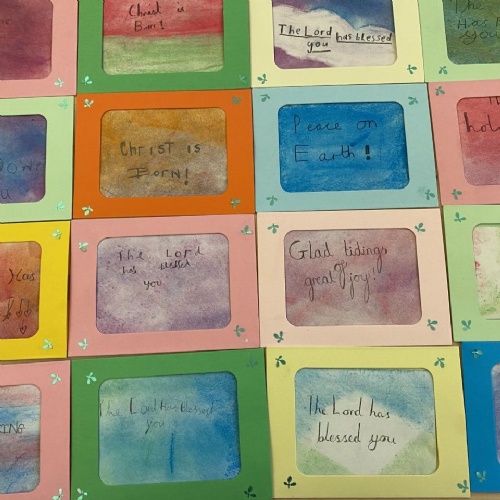 Christ is
Born!
The Lord has blessed
you
The
Has
you
you
Christ is
Born!
Peace on
Earth!
hol
Has
The Lord
has blessed
you
Glad tidings
of
great joy!
KING
The Lord Has blessed
you
The Lord has
blessed you